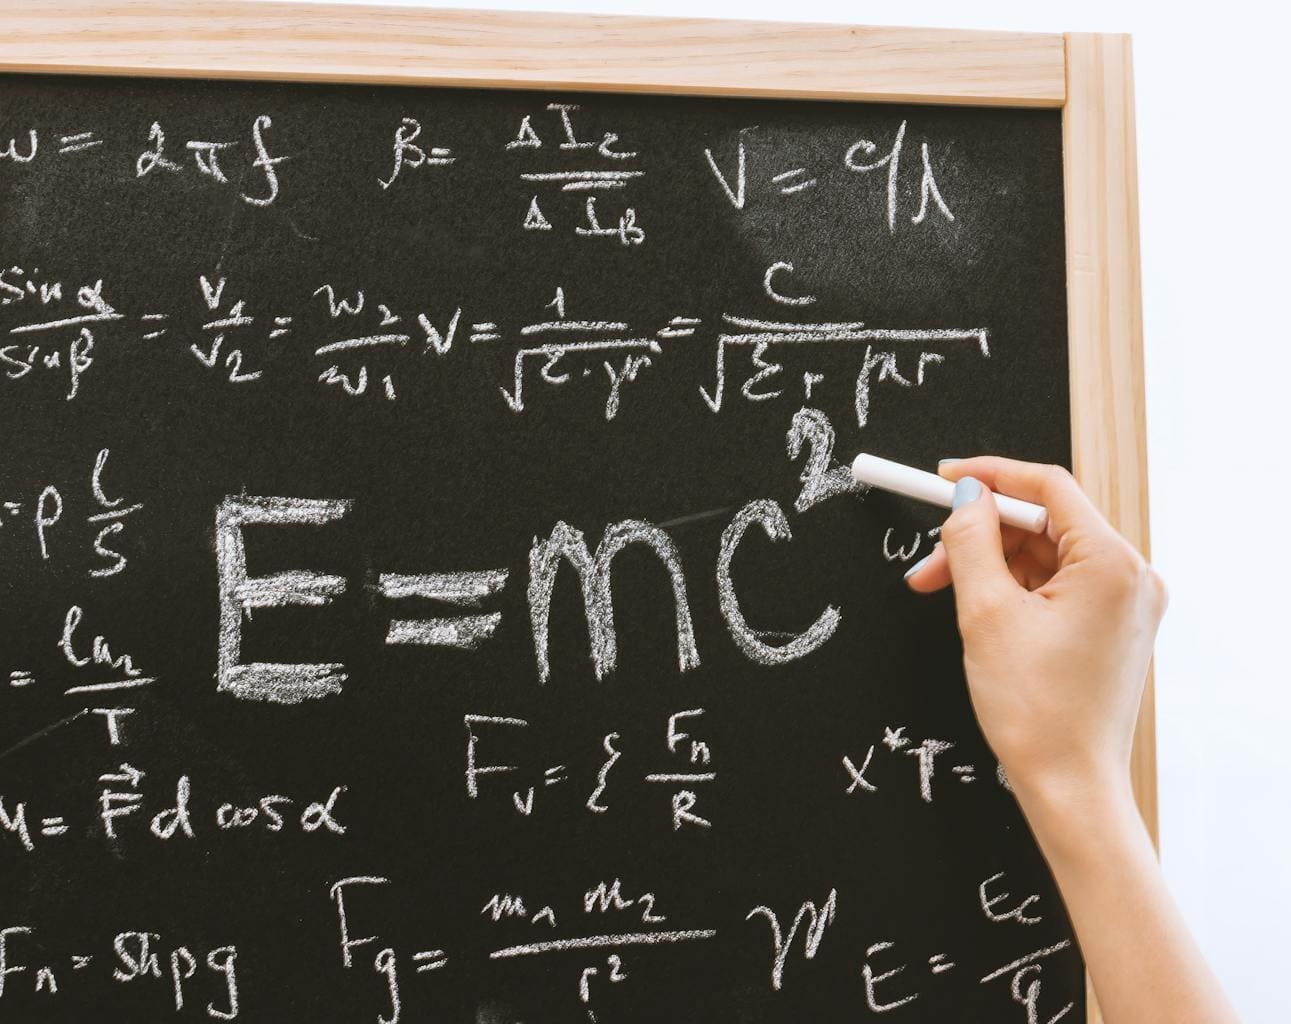 ω = 2πf β = ΔIc/ΔIB V =
sin α/sin β = V1/V2 = n2/n1 V = 1/√(ε·μ) = c/√(εr μr)
= ρ l/S
E = mc²
ω
= ln2/T
Fv = { Fn/R
= F⃗ d cos α
x*T =
Fn = Shρg Fg = m1 m2/r² E = Ec/q